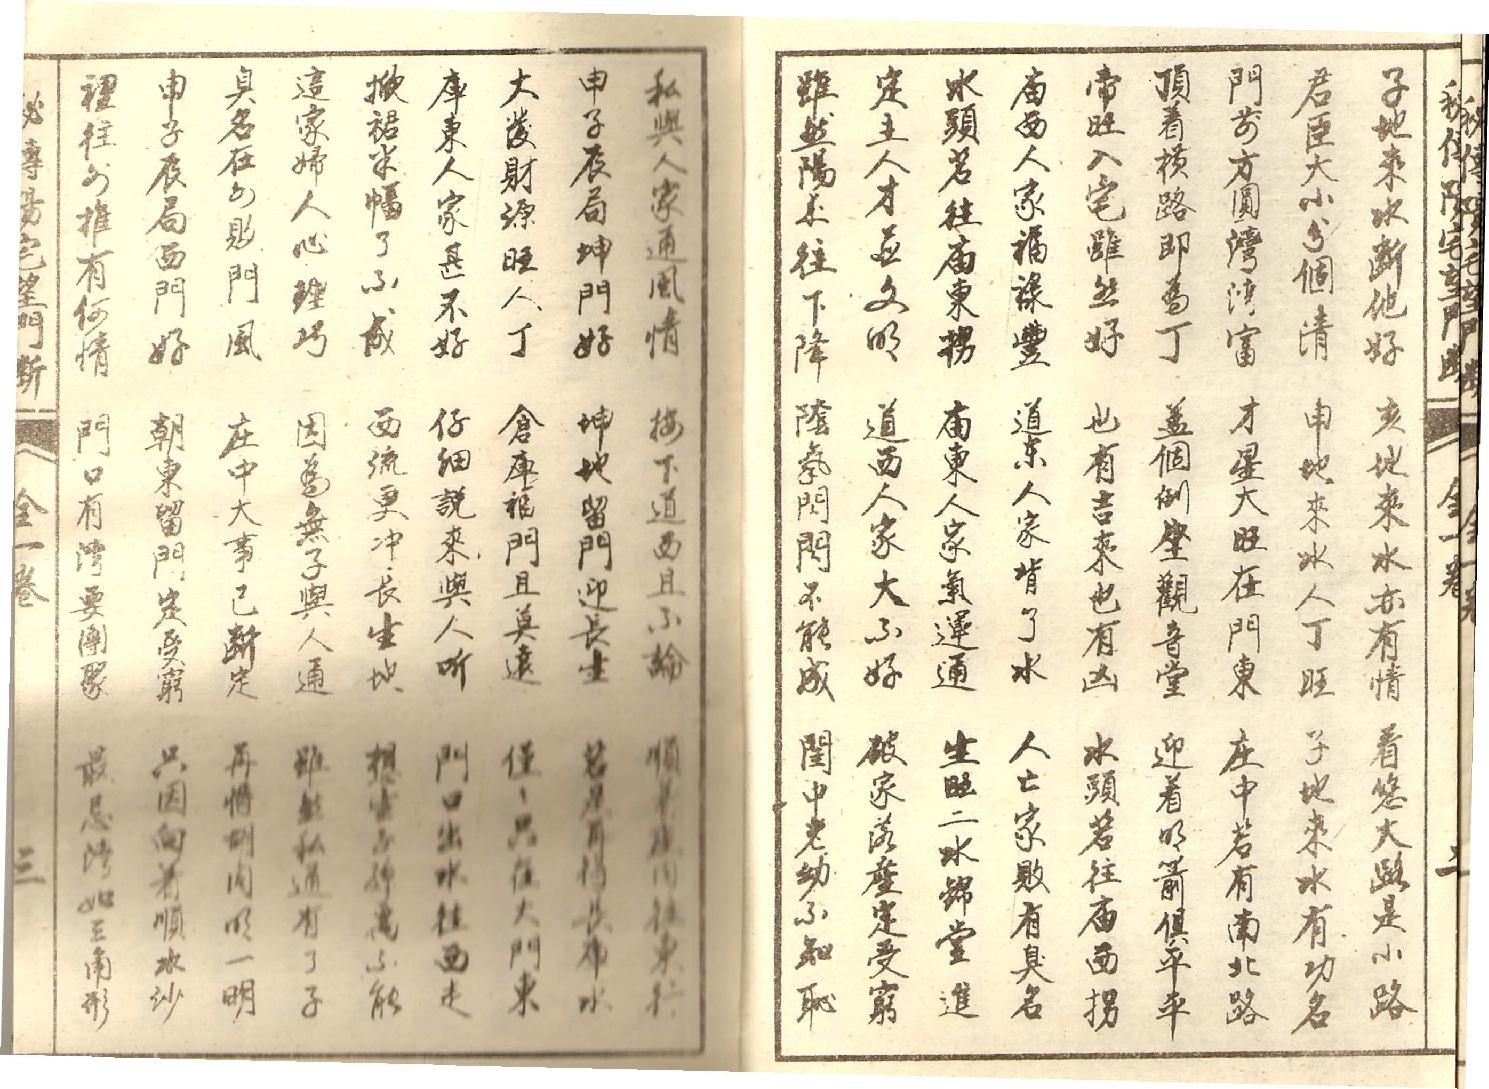 子地來水斷他好 亥地來水亦有情 看您大路是小路
君臣大小分個清 申地來水人丁旺 子地來水有功名
門前方圓灣湾富 才星大旺在門東 庄中若有南北路
頂着横路即為丁 盖個倒坐觀音堂 迎着明箭俱平平
帝旺入宅雖然好 也有吉來也有凶 水頭若往庙西拐
庙西人家福祿豐 道东人家背了水 人亡家敗有臭名
水頭若往庙東拐 庙東人家氣運通 生旺二水錦堂進
定主人才並文明 道西人家大不好 破家落产定受窮
雖然陽气往下降 陰氣閃閃不能成 閨中老幼不知恥
私與人家通風情 按下道西且不論 順着 往東行
申子辰局坤門好 坤地留門迎長生 若是 水
大發財源旺人丁 倉庫福門且莫遠 僅、只在大門東
庫東人家甚不好 仔细說來與人听 門口出水往西走
掀裙半幅了不成 西流更冲長生地 想 萬不能
這家婦人心 巧 因為無子與人通 雖然私通有了子
臭名在外 門風 庄中大事已断定 再將 明一明
申子辰局西門好 朝東留門定受窮 只因向着順水沙
裡往外推有何情 門口有湾要團聚 最忌湾如三角形
秘傳陽宅望門斷 全一卷 三